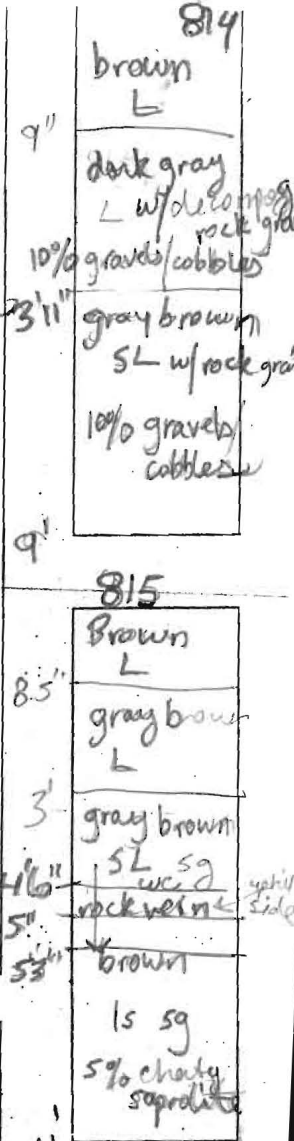 814
brown
L
9"
dark gray
L w/decompos
rock gra
10% gravels/cobbles
3'11"
gray brown
SL w/rock gra
10% gravels/
cobbles
9'
815
Brown
L
8.5"
gray brow
L
3'
gray brown
SL sg
4'6"
rock vein ←
side
5"
brown
ls sg
5%
saprolite